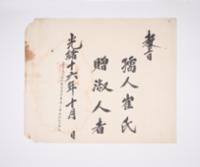 敎旨
孺人崔氏
贈淑人者
光緖十六年十月　日